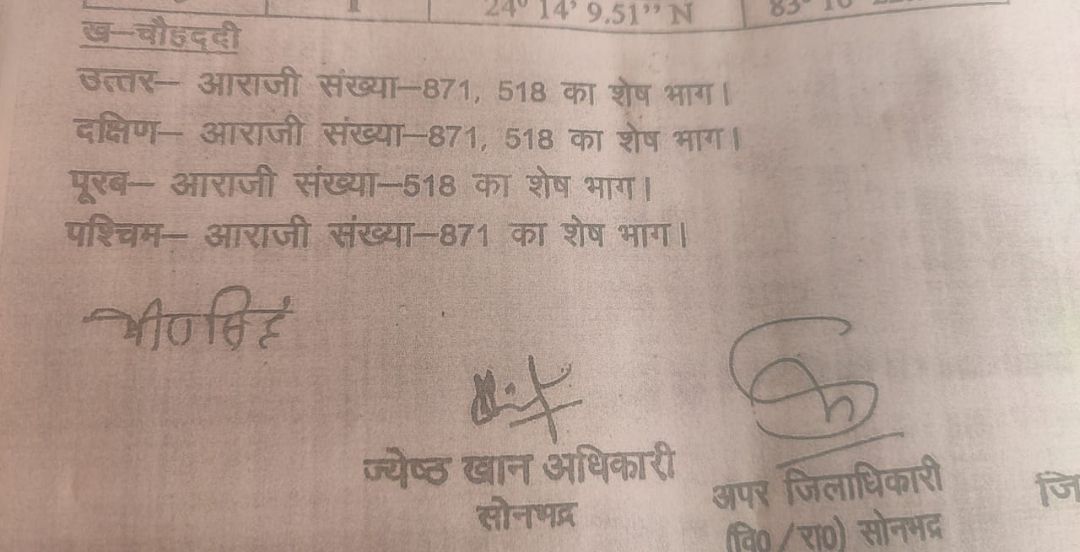 1 24° 14' 9.51'' N
ख–चौहद्दी
उत्तर– आराजी संख्या–871, 518 का शेष भाग।
दक्षिण– आराजी संख्या–871, 518 का शेष भाग।
पूरब– आराजी संख्या–518 का शेष भाग।
पश्चिम– आराजी संख्या–871 का शेष भाग।
ज्येष्ठ खान अधिकारी
सोनभद्र
अपर जिलाधिकारी
(वि0/रा0) सोनभद्र